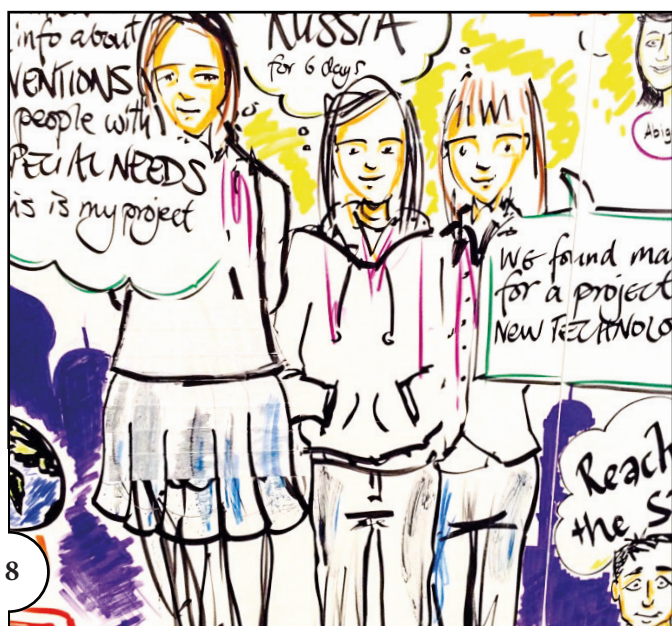 info about
VENTIONS
people with
SPECIAL NEEDS
is is my project
RUSSIA
for 6 days
Abig
We found ma
for a project
NEW TECHNOLO
Reach
the S
8